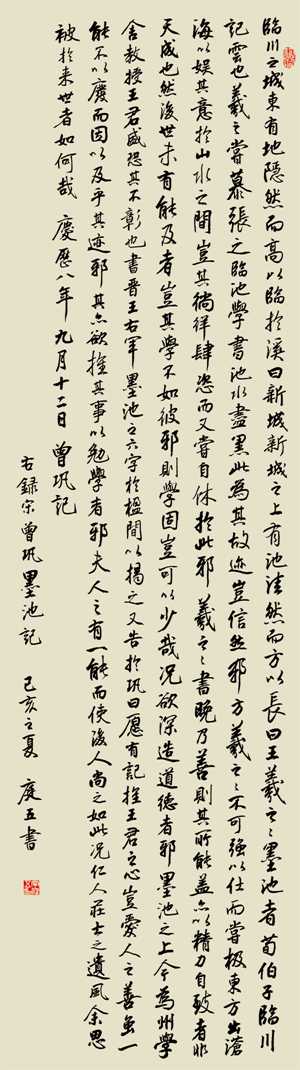 臨川之城東有地隱然而高以臨於溪曰新城新城之上有池洼然而方以長曰王羲之々墨池者荀伯子臨川
記雲也羲之嘗慕張之臨池學書池水盡黑此為其故迹豈信然邪方羲之々不可強以仕而嘗極東方出滄
海以娛其意於山水之間豈其徜徉肆恣而又嘗自休於此邪羲之々書晚乃善則其所能蓋亦以精力自致者非
天成也然後世未有能及者豈其學不如彼邪則學固豈可以少哉況欲深造道德者邪墨池之上今為州學
舍教授王君盛恐其不彰也書晉王右軍墨池之六字於楹間以揭之又告於巩曰愿有記推王君之心豈愛人之善雖一
能不以廢而因以及乎其迹邪其亦欲推其事以勉學者邪夫人之有一能而使後人尚之如此況仁人莊士之遺風余思
被於來世者如何哉 慶歷八年九月十二日 曾巩記
右録宋曾巩墨池記 己亥之夏 庭五書